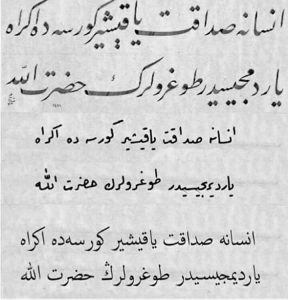 انسانه صداقت یاقیشیر كورسه ده اكراه
یاردمجیسیدر طوغرولرك حضرت الله
انسانه صداقت یاقیشیر كورسه ده اكراه
یاردیمجیسیدر طوغرولرك حضرت الله
انسانه صداقت یاقیشیر كورسه‌ده اكراه
یاردیمجیسیدر طوغرولرڭ حضرت الله